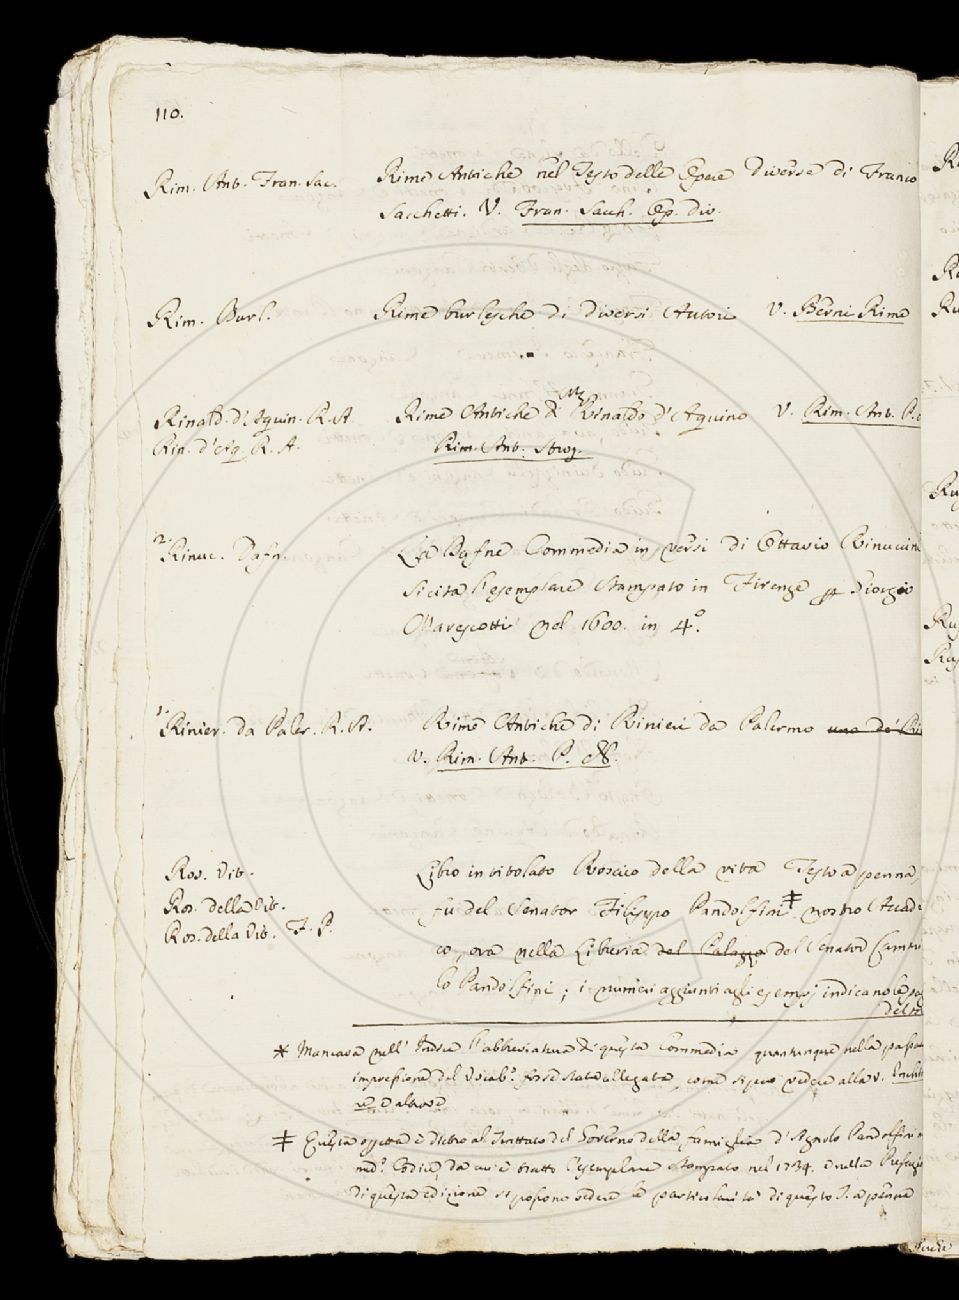 110.
Rim. Ant. Fran. Sac. Rime Antiche nel Testo delle Opere Diverse di Franco
Sacchetti. V. Fran. Sacch. Op. div.
Rim. Burl. Rime burlesche di diversi Autori V. Berni Rime
Rinald. d'Aquin. R. A. Rime Antiche di M. Rinaldo d'Aquino V. Rim. Ant. P.
Rin. d'Aq. R. A. Rim. Ant. Stroz.
2. Rinuc. Dafn. La Dafne Commedia in versi di Ottavio Rinuccini
Si cita l'esemplare stampato in Firenze p Giorgio
Marescotti nel 1600. in 4.°
1. Rinier. da Paler. R. A. Rime Antiche di Rinieri da Palermo uno de'
V. Rim. Ant. P. N.
Ros. Vit. Libro intitolato Rosaio della vita Testo a penna,
Ros. della Vit. fu del Senator Filippo Pandolfini ‡ nostro Accad
Ros. della Vit. T. P. co, ora nella Libreria del Palazzo del Senator Cammil
lo Pandolfini; i numeri aggiunti agli esempj indicano le pag
del
* Mancava nell' Indice l'abbreviatura di questa Commedia quantunque nella passata
impressione del Vocab.° fosse stata allegata, come si puo vedere alla v.
e altrove
‡ Questa opetta è dietro al Trattato del Governo della famiglia d'Agnolo Pandolfini
med.° Codice, da cui è tratto l'esemplare Stampato nel 1734. e nella Prefazio
di questa edizione si possono vedere le particularità di questo T. a penna